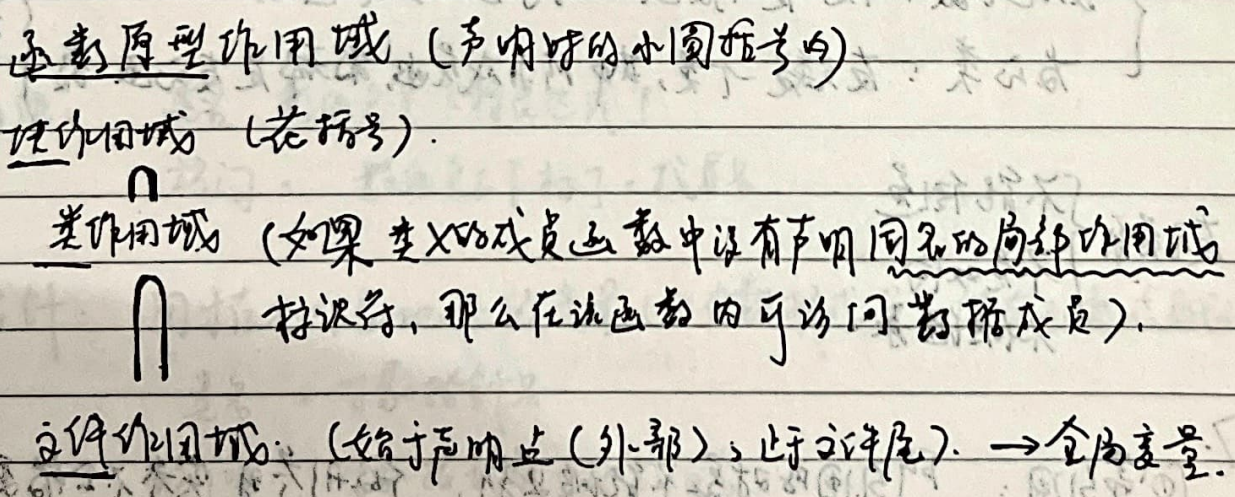 函数原型作用域（声明时的小圆括号内）
块作用域（花括号）.
类作用域（如果类X的成员函数中没有声明同名的局部作用域
标识符，那么在该函数内可访问数据成员）.
文件作用域：（始于声明点（外部），止于文件尾）. →全局变量.